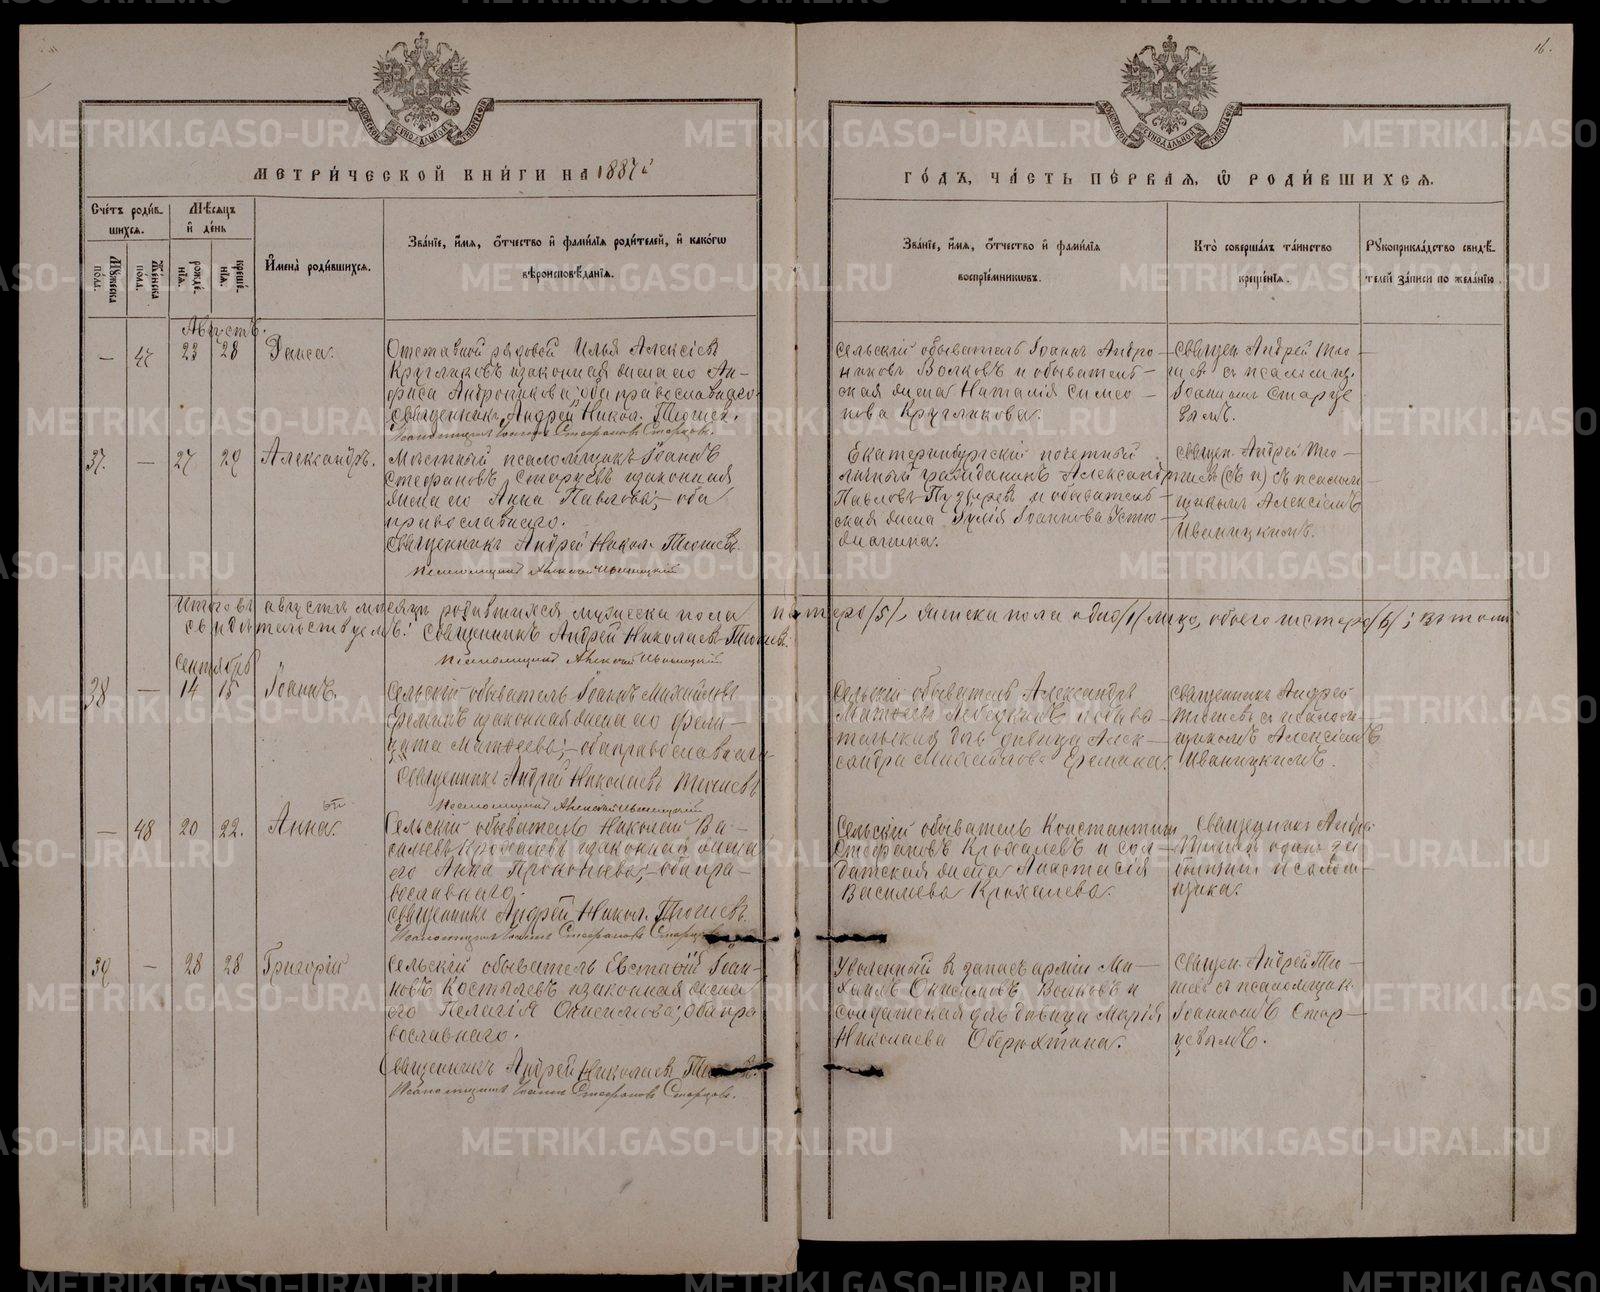 16.
МЕТРИ́ЧЕСКОЙ КНИ́ГИ НА 1887 й
ГО́ДЪ, ЧА́СТЬ ПЕ́РВАЯ, Ѡ РОДИ́ВШИХСЯ.
Сче́тъ роди́в-
шихся.
Му́жеска по́ла.
Же́нска по́ла.
Мѣ́сяцъ и де́нь
рожде́-нїя.
креще́-нїя.
Имена̀ роди́вшихся.
Зва́нїе, и́мя, о́тчество и фами́лїя роди́телей, и како́гѡ
вѣроисповѣ́данїя.
Зва́нїе, и́мя, о́тчество и фами́лїя
воспрїе́мниковъ.
Кто̀ соверша́лъ та́инство
креще́нїя.
Рꙋкоприкла́дство свидѣ́-
телей за́писи по жела́нїю.
Августъ.
— 47 23 28 Раиса.
Отставной рядовой Илья Алексіевъ
Кругляковъ и законная жена его Ан-
фиса Андроникова, оба православнаго.
Священникъ Андрей Никол. Тюшев.
Псаломщикъ Іоаннъ Стефановъ Старцевъ.
Сельскій обыватель Іоаннъ Андро-
никовъ Волковъ и обыватель-
ская жена Наталія Симео-
нова Круглякова.
Священ. Андрей Тю-
шевъ съ псаломщ.
Іоанномъ Старце
вымъ.
37. — 27 29 Александръ.
Мѣстный псаломщикъ Іоаннъ
Стефановъ Старцевъ и законная
жена его Анна Павлова, оба
православнаго.
Священникъ Андрей Никол. Тюшевъ.
Псаломщикъ Алексій Иваницкій
Екатеринбургскій почетный
личный гражданинъ Александръ
Павловъ Пузыревъ и обыватель-
ская жена Юлія Іоаннова Устю-
жанина.
Священ. Андрей Тю-
шевъ съ псалом-
щикомъ Алексіемъ
Иваницкимъ.
Итого въ августѣ мѣсяцѣ родившихся мужеска пола пятеро /5/, женска пола одно /1/ лицо, обоего шестеро /6/; въ томъ
свидѣтельствуемъ: Священникъ Андрей Николаевъ Тюшевъ.
Псаломщикъ Алексій Иваницкій
Сентябрь
38 — 14 15 Іоаннъ.
Сельскій обыватель Іоаннъ Михайловъ
Ереминъ и законная жена его Фели-
цата Матѳеева, оба православнаго
Священникъ Андрей Николаевъ Тюшевъ
Псаломщикъ Алексій Иваницкій
Сельскій обыватель Александръ
Матѳеевъ и обыва-
тельская дочь дѣвица Алек-
сандра Михайлова Еремина.
Священникъ Андрей
Тюшевъ съ псалом-
щикомъ Алексіемъ
Иваницкимъ.
— 48 20 22. Анна.
Сельскій обыватель Николай Ва-
сильевъ Крохалевъ и законная жена
его Анна Прокопьева, оба пра-
вославнаго.
Священникъ Андрей Никол. Тюшевъ.
Псаломщикъ Іоаннъ Стефановъ Старцевъ
Сельскій обыватель Константинъ
Стефановъ Крохалевъ и сол-
датская жена Анастасія
Васильева Крохалева.
Священникъ Андрей
Тюшевъ одинъ за
болѣзнію псалом-
щика.
39 — 28 28 Григорій
Сельскій обыватель Евстафій Іоан-
новъ Костычевъ и законная жена
его Пелагія Онисимова, оба пра
вославнаго.
Священникъ Андрей Николаевъ Тюшевъ.
Псаломщикъ Іоаннъ Стефановъ Старцевъ.
Уволенный въ запасъ арміи Ми-
хаилъ Онисимовъ Волковъ и
солдатская дочь дѣвица Марія
Николаева Оберюхтина.
Священ. Андрей Тю-
шевъ съ псаломщик.
Іоанномъ Стар-
цевымъ.
METRIKI.GASO-URAL.RU